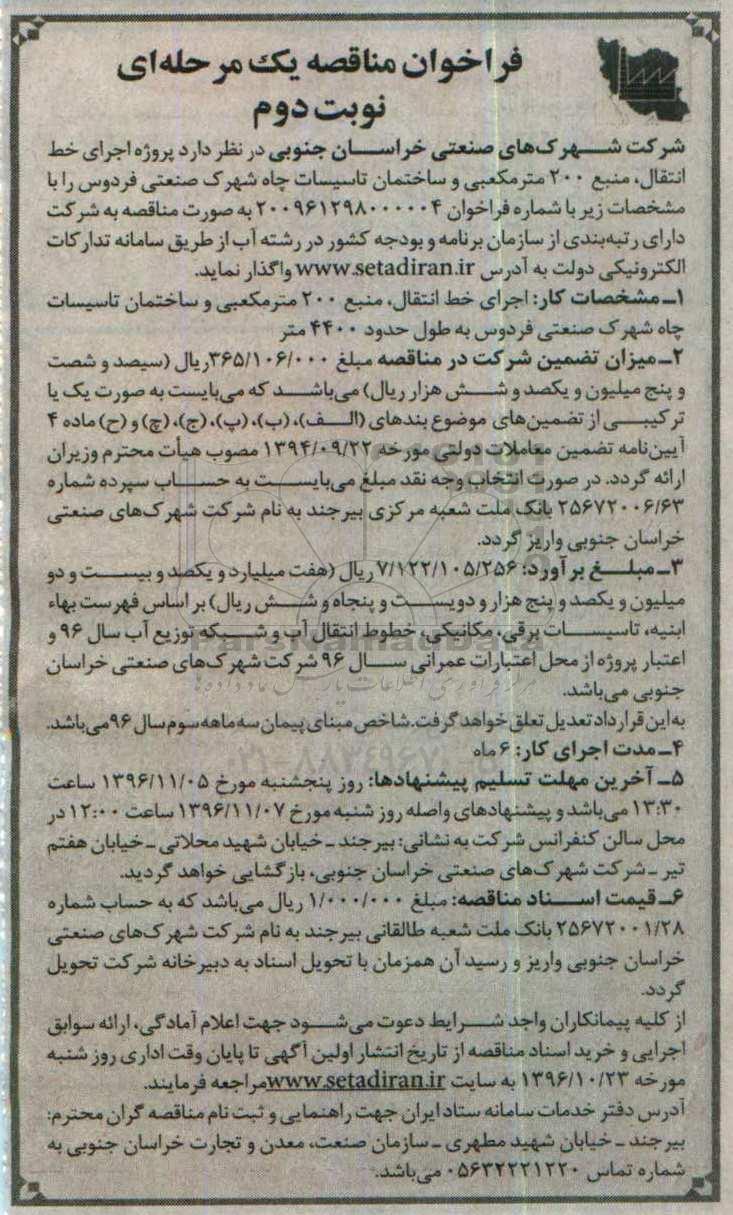 فراخوان مناقصه یک مرحله‌ای
نوبت دوم
شرکت شهرک‌های صنعتی خراسان جنوبی در نظر دارد پروژه اجرای خط
انتقال، منبع ۲۰۰ مترمکعبی و ساختمان تاسیسات چاه شهرک صنعتی فردوس را با
مشخصات زیر با شماره فراخوان ۲۰۰۹۶۱۲۹۸۰۰۰۰۰۴ به صورت مناقصه به شرکت
دارای رتبه‌بندی از سازمان برنامه و بودجه کشور در رشته آب از طریق سامانه تدارکات
الکترونیکی دولت به آدرس www.setadiran.ir واگذار نماید.
۱ـ مشخصات کار: اجرای خط انتقال، منبع ۲۰۰ مترمکعبی و ساختمان تاسیسات
چاه شهرک صنعتی فردوس به طول حدود ۴۴۰۰ متر
۲ـ میزان تضمین شرکت در مناقصه مبلغ ۳۶۵/۱۰۶/۰۰۰ریال (سیصد و شصت
و پنج میلیون و یکصد و شش هزار ریال) می‌باشد که می‌بایست به صورت یک یا
ترکیبی از تضمین‌های موضوع بندهای (الف)، (ب)، (پ)، (ج)، (چ) و (ح) ماده ۴
آیین‌نامه تضمین معاملات دولتی مورخه ۱۳۹۴/۰۹/۲۲ مصوب هیأت محترم وزیران
ارائه گردد. در صورت انتخاب وجه نقد مبلغ می‌بایست به حساب سپرده شماره
۲۵۶۷۲۰۰۶/۶۳ بانک ملت شعبه مرکزی بیرجند به نام شرکت شهرک‌های صنعتی
خراسان جنوبی واریز گردد.
۳ـ مبلغ برآورد: ۷/۱۲۲/۱۰۵/۲۵۶ ریال (هفت میلیارد و یکصد و بیست و دو
میلیون و یکصد و پنج هزار و دویست و پنجاه و شش ریال) بر اساس فهرست بهاء
ابنیه، تاسیسات برقی، مکانیکی، خطوط انتقال آب و شبکه توزیع آب سال ۹۶ و
اعتبار پروژه از محل اعتبارات عمرانی سال ۹۶ شرکت شهرک‌های صنعتی خراسان
جنوبی می‌باشد.
به این قرارداد تعدیل تعلق خواهد گرفت. شاخص مبنای پیمان سه ماهه سوم سال ۹۶ می‌باشد.
۴ـ مدت اجرای کار: ۶ ماه
۵ـ آخرین مهلت تسلیم پیشنهادها: روز پنجشنبه مورخ ۱۳۹۶/۱۱/۰۵ ساعت
۱۳:۳۰ می‌باشد و پیشنهادهای واصله روز شنبه مورخ ۱۳۹۶/۱۱/۰۷ ساعت ۱۲:۰۰ در
محل سالن کنفرانس شرکت به نشانی: بیرجند ـ خیابان شهید محلاتی ـ خیابان هفتم
تیر ـ شرکت شهرک‌های صنعتی خراسان جنوبی، بازگشایی خواهد گردید.
۶ـ قیمت اسناد مناقصه: مبلغ ۱/۰۰۰/۰۰۰ ریال می‌باشد که به حساب شماره
۲۵۶۷۲۰۰۱/۲۸ بانک ملت شعبه طالقانی بیرجند به نام شرکت شهرک‌های صنعتی
خراسان جنوبی واریز و رسید آن همزمان با تحویل اسناد به دبیرخانه شرکت تحویل
گردد.
از کلیه پیمانکاران واجد شرایط دعوت می‌شود جهت اعلام آمادگی، ارائه سوابق
اجرایی و خرید اسناد مناقصه از تاریخ انتشار اولین آگهی تا پایان وقت اداری روز شنبه
مورخه ۱۳۹۶/۱۰/۲۳ به سایت www.setadiran.ir مراجعه فرمایند.
آدرس دفتر خدمات سامانه ستاد ایران جهت راهنمایی و ثبت نام مناقصه گران محترم:
بیرجند ـ خیابان شهید مطهری ـ سازمان صنعت، معدن و تجارت خراسان جنوبی به
شماره تماس ۰۵۶۳۲۲۲۱۲۲۰ می‌باشد.